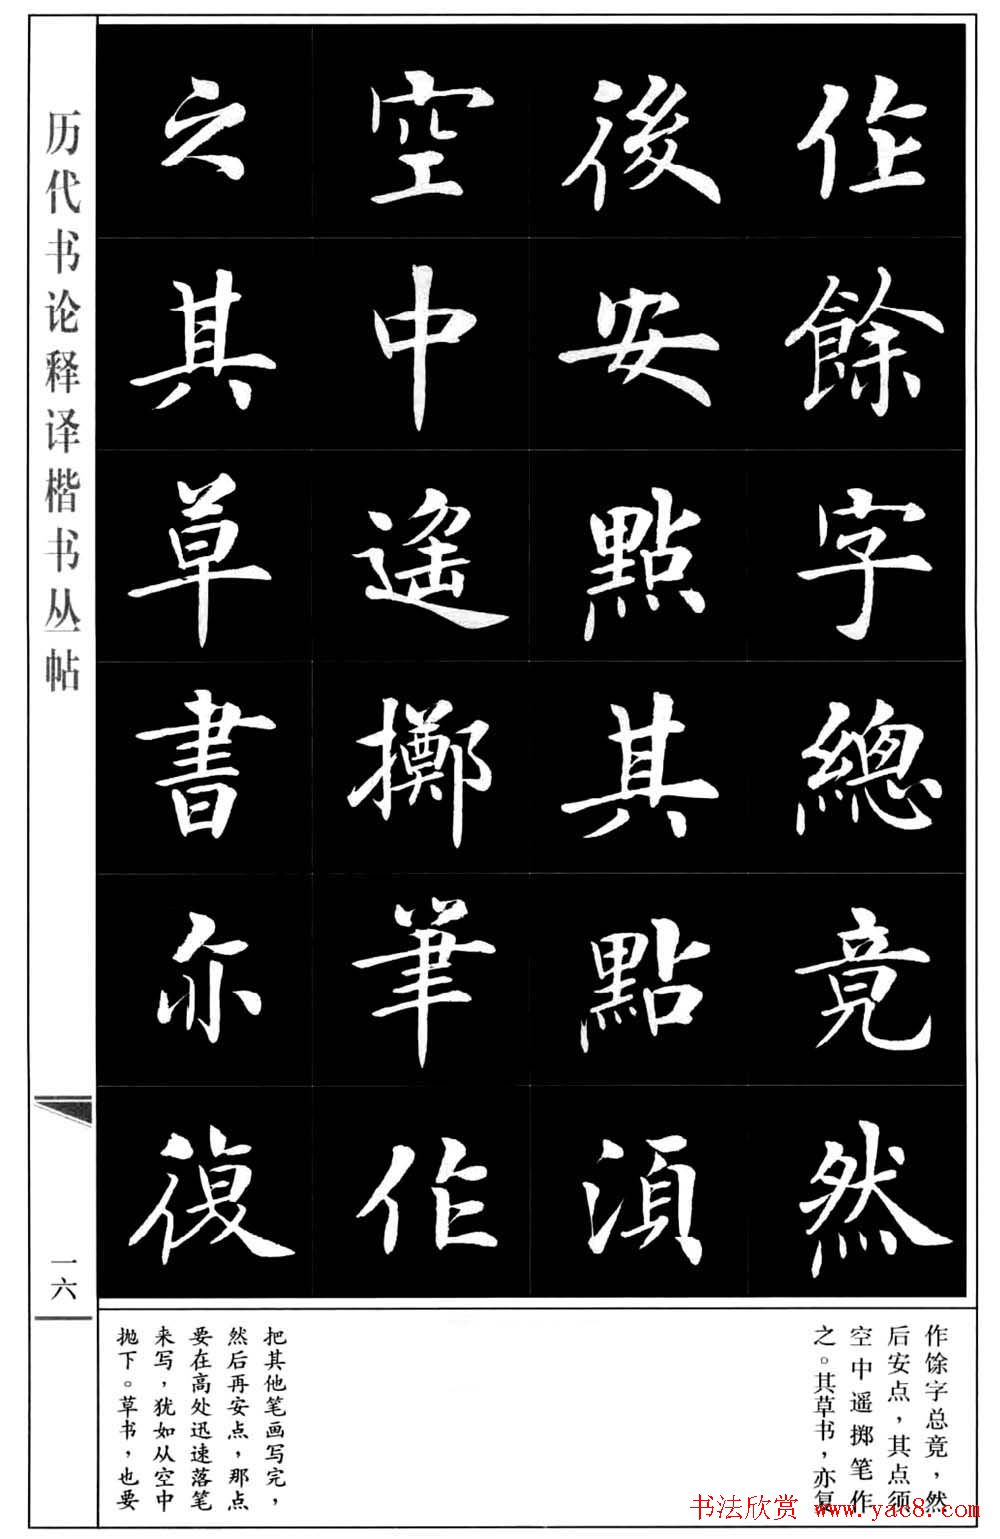 作餘字總竟然
後安點其點須
空中遙擲筆作
之其草書亦復
历代书论释译楷书丛帖
一六
作馀字总竟，然
后安点，其点须
空中遥掷笔作
之。其草书，亦复
把其他笔画写完，
然后再安点，那点
要在高处迅速落笔
来写，犹如从空中
抛下。草书，也要
书法欣赏 www.yac8.com